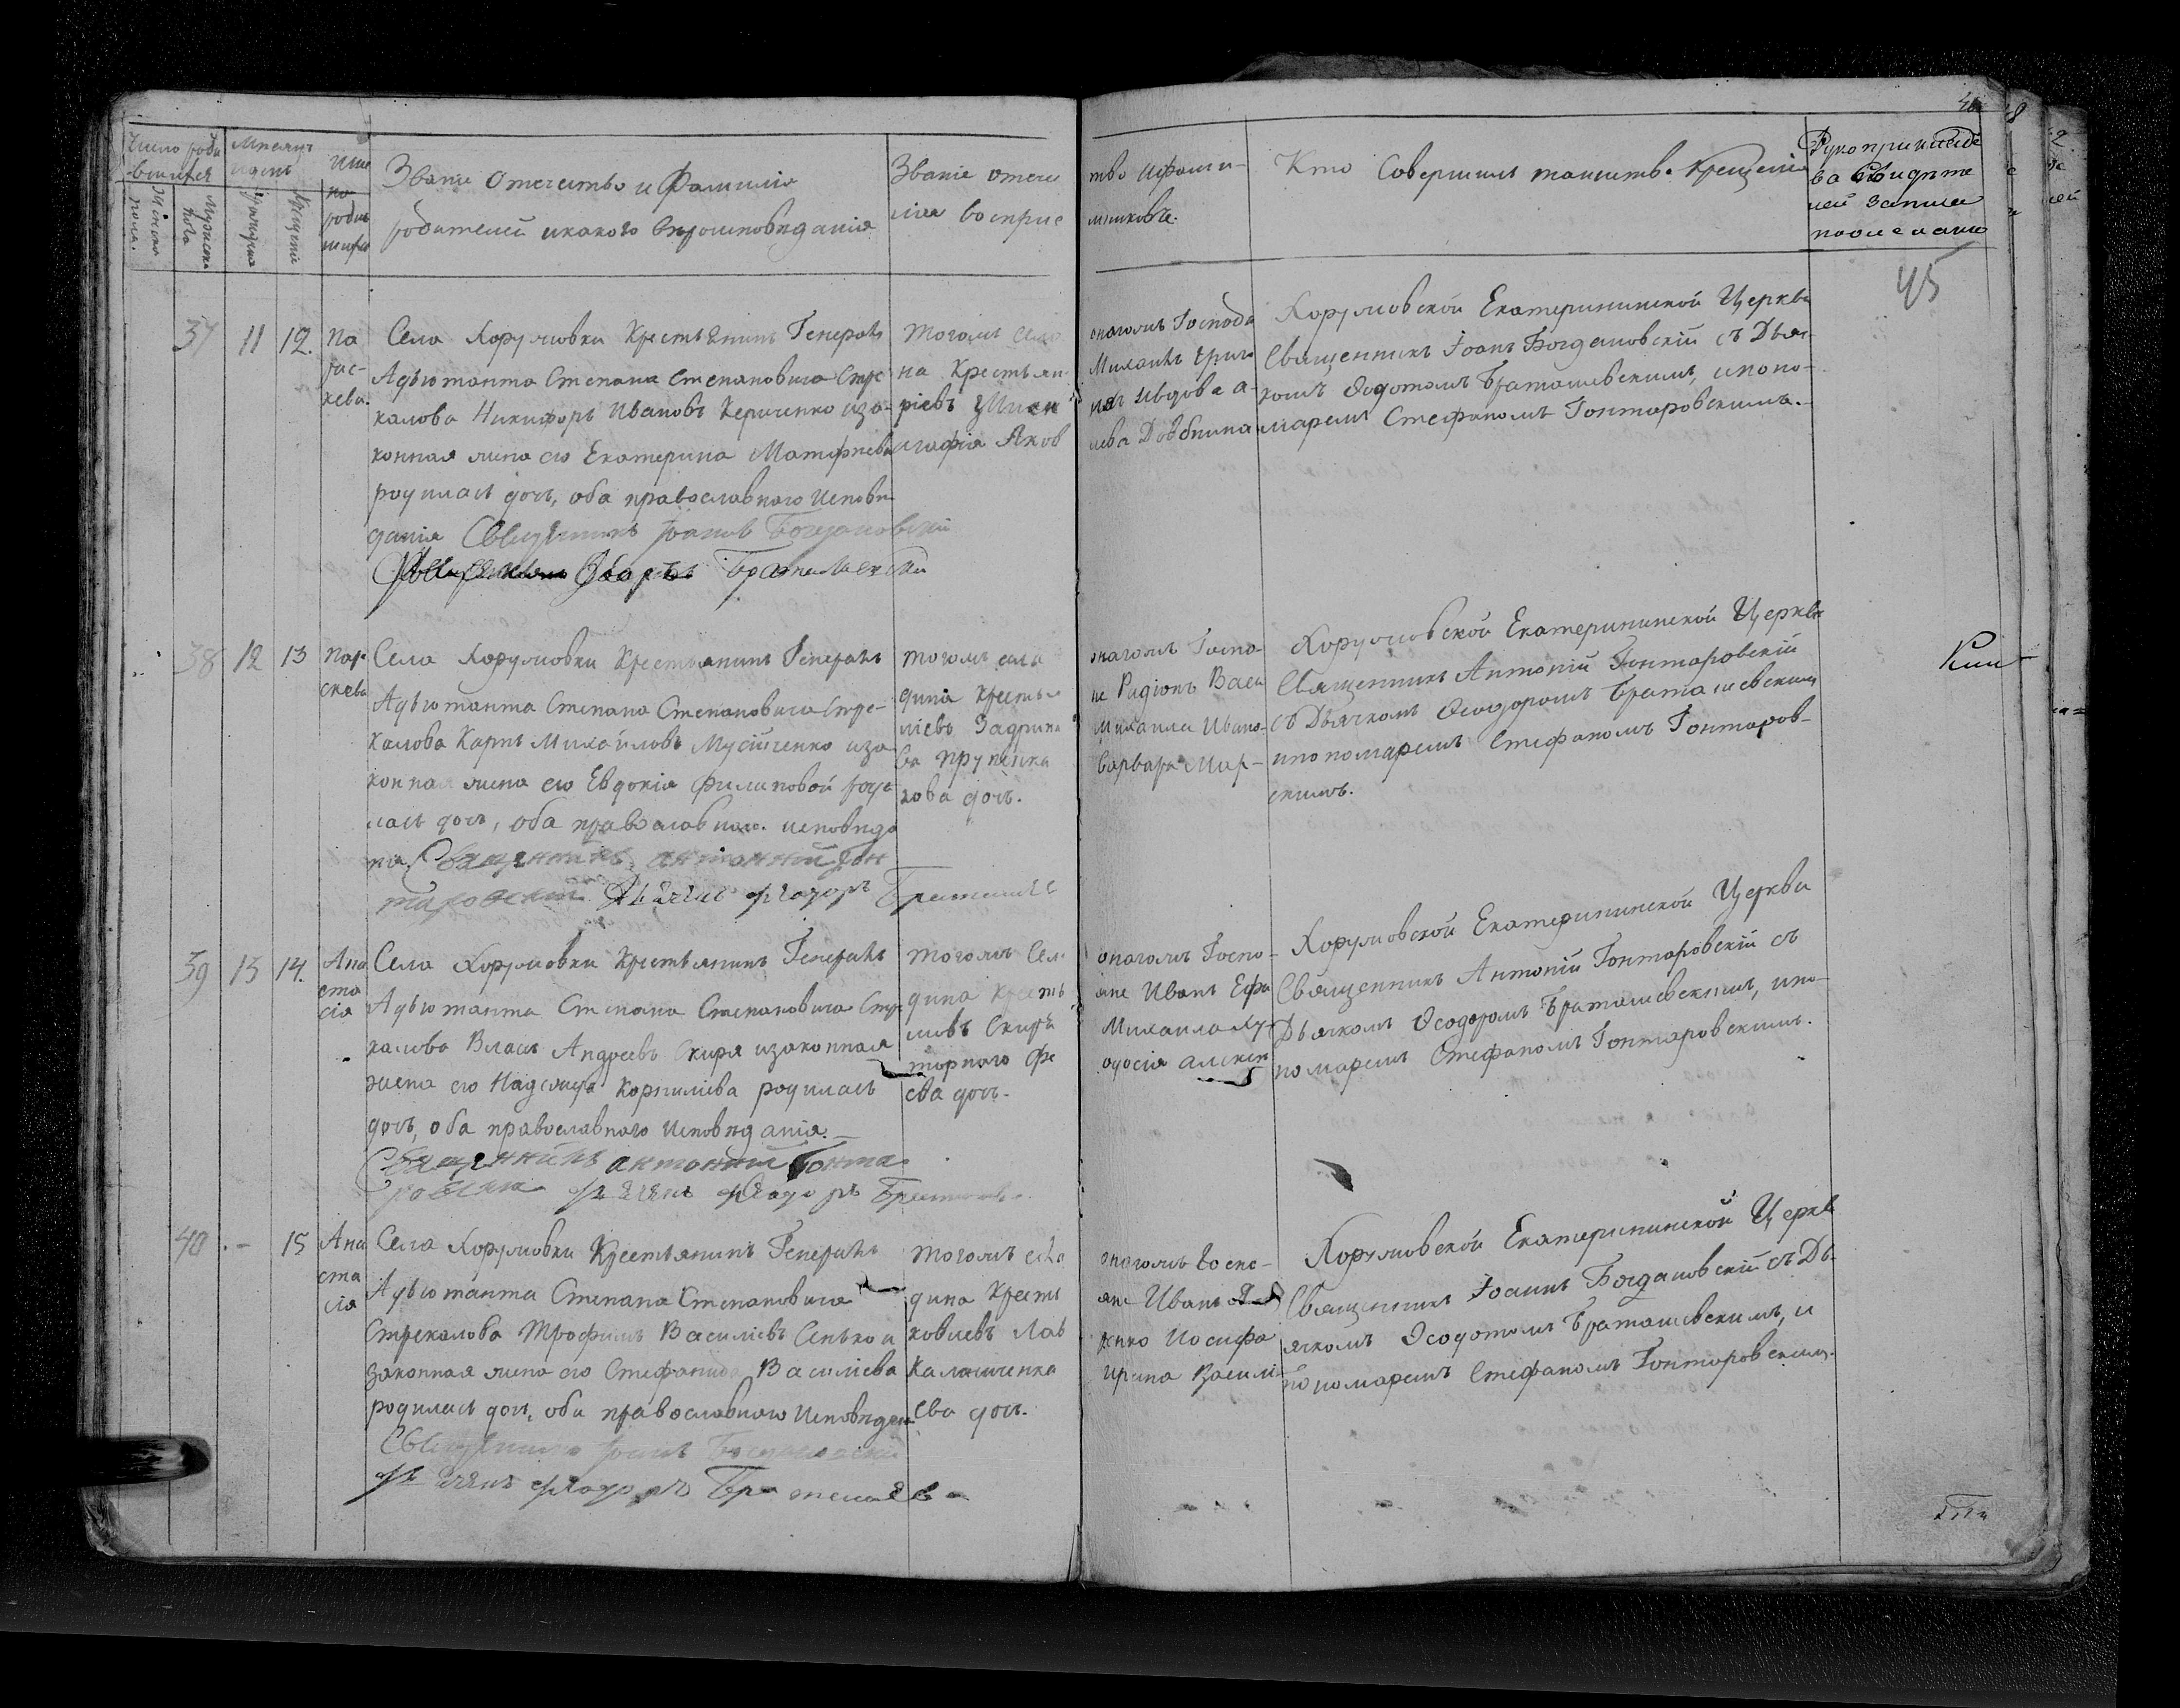 Число роди
вшихся
Месяцъ
и день
Име
на
родив
шихся
Женска
пола.
Мужеска
пола
рожденія
Крещеніе
Званіе Отечество и Фамилія
родителей икакого вѣроисповѣданія
Званіе отече
ліи воспріе
тво ифами-
мниковъ.
Кто Совершилъ таинство Крещенія
Рукоприкладс
ва свидѣте
лей записи
по желанію
45
37 11 12. Па
рас-
кева.
Села Хоружовки Крестьянинъ Генералъ
Адъютанта Степана Степановича Стре
калова Никифоръ Ивановъ Кериченко иза-
конная жена его Екатерина Матфеева
родилась дочь, оба православного Исповѣ
данія Священникъ Іоаннъ Богдановскій
Тогожъ Села
на Крестьян
агафія Яков
оногожъ Господи
Михаилъ Григо
лева Довбнина
Хоружовской Екатерининской Церкви
Священникъ Іоанъ Богдановскій съ Дья-
комъ Ѳедотомъ Браташевскимъ, ипоно-
маремъ Стефаномъ Гонтаровскимъ.
38 12 13 Пара
скева
Села Хоружовки Крестьянинъ Генералъ
Адъютанта Степана Степановича Стре-
калова Карпъ Михайловъ Мусіиченко иза
конная жена его Евдокія Филиповой роди
лась дочь, оба православного исповѣда
нія Священникъ антонній Гон
таровскій Дьячекъ Феодоръ Браташев
Тогожъ села
дина Крестья
ліевъ
кова дочь.
оногожъ Госпо-
не Радіонъ Васи
Михаила Ивано-
варвара Мар-
Хоружовской Екатерининской Церкви
Священникъ Антоній Гонтаровскій
съ Дьячкомъ Ѳеодоромъ Браташевскимъ
ипономаремъ Стефаномъ Гонтаров-
скимъ.
39 13 14. Ана
ста
сія
Села Хоружовки Крестьянинъ Генералъ
Адъютанта Степана Степановича Стре
калова Власъ Андреевъ Скиря изаконная
жена его Надежда Корнилиева родилась
дочь, оба православного Исповѣданія.
Священникъ антонній Гонта
ровскій Дьячекъ Феодоръ Браташев
Тогожъ Села
дина Кресть
мовъ Скиря
торного Фе
ева дочь.
оногожъ Госпо-
яне Иванъ Ефи
Михаила Ку-
одосія алексѣ
Хоружовской Екатерининской Церкви
Священникъ Антоній Гонтаровскій съ
Дьячкомъ Ѳеодоромъ Браташевскимъ, ипо-
номаремъ Стефаномъ Гонтаровскимъ.
40 - 15 Ана
ста
сія
Села Хоружовки Крестьянинъ Генералъ
Адъютанта Степана Степановича
Стрекалова Трофимъ Василіевъ Сенько и
законная жена его Стефанида Василіева
родилась дочь, оба православного Исповѣдан
Священникъ Іоаннъ Богдановскій
Дьячекъ Феодоръ Браташев
Тогожъ села
дина Кресть
ковлевъ Лав
Калашченка
ева дочь.
оногожъ Госпо-
яне Иванъ Я
ренко Иосифа
ирина Василі
Хоружовской Екатерининской Церкв
Священникъ Іоаннъ Богдановскій съ Дь-
ячкомъ Ѳеодотомъ Браташевскимъ, и
пономаремъ Стефаномъ Гонтаровскимъ.